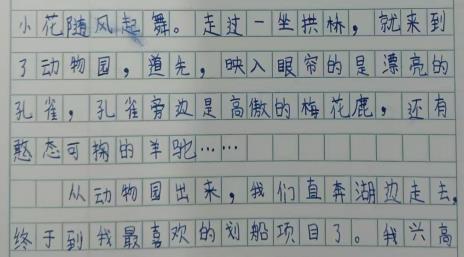 小花随风起舞。走过一坐拱林，就来到
了动物园，道先，映入眼帘的是漂亮的
孔雀，孔雀旁边是高傲的梅花鹿，还有
憨态可掬的羊驼……
从动物园出来，我们直奔湖边走去，
终于到我最喜欢的划船项目了。我兴高